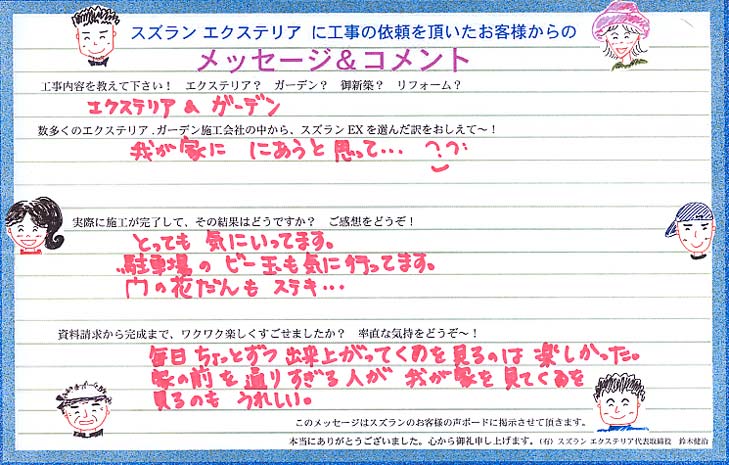 スズラン エクステリア に工事の依頼を頂いたお客様からの
メッセージ&コメント
工事内容を教えて下さい! エクステリア? ガーデン? 御新築? リフォーム?
エクステリア & ガーデン
数多くのエクステリア.ガーデン施工会社の中から、スズランEXを選んだ訳をおしえて~!
我が家に にあうと思って…
実際に施工が完了して、その結果はどうですか? ご感想をどうぞ!
とっても 気にいってます。
駐車場の ビー玉も気に行ってます。
の花だんも ステキ…
資料請求から完成まで、ワクワク楽しくすごせましたか? 率直な気持をどうぞ~!
毎日 ちょっとずつ 出来上がってくのを見るのは 楽しかった。
家の前を通りすぎる人が 我が家を見てくのを
見るのも うれしい。
このメッセージはスズランのお客様の声ボードに掲示させて頂きます。
本当にありがとうございました。心から御礼申し上げます。(有) スズラン エクステリア代表取締役 鈴木健治